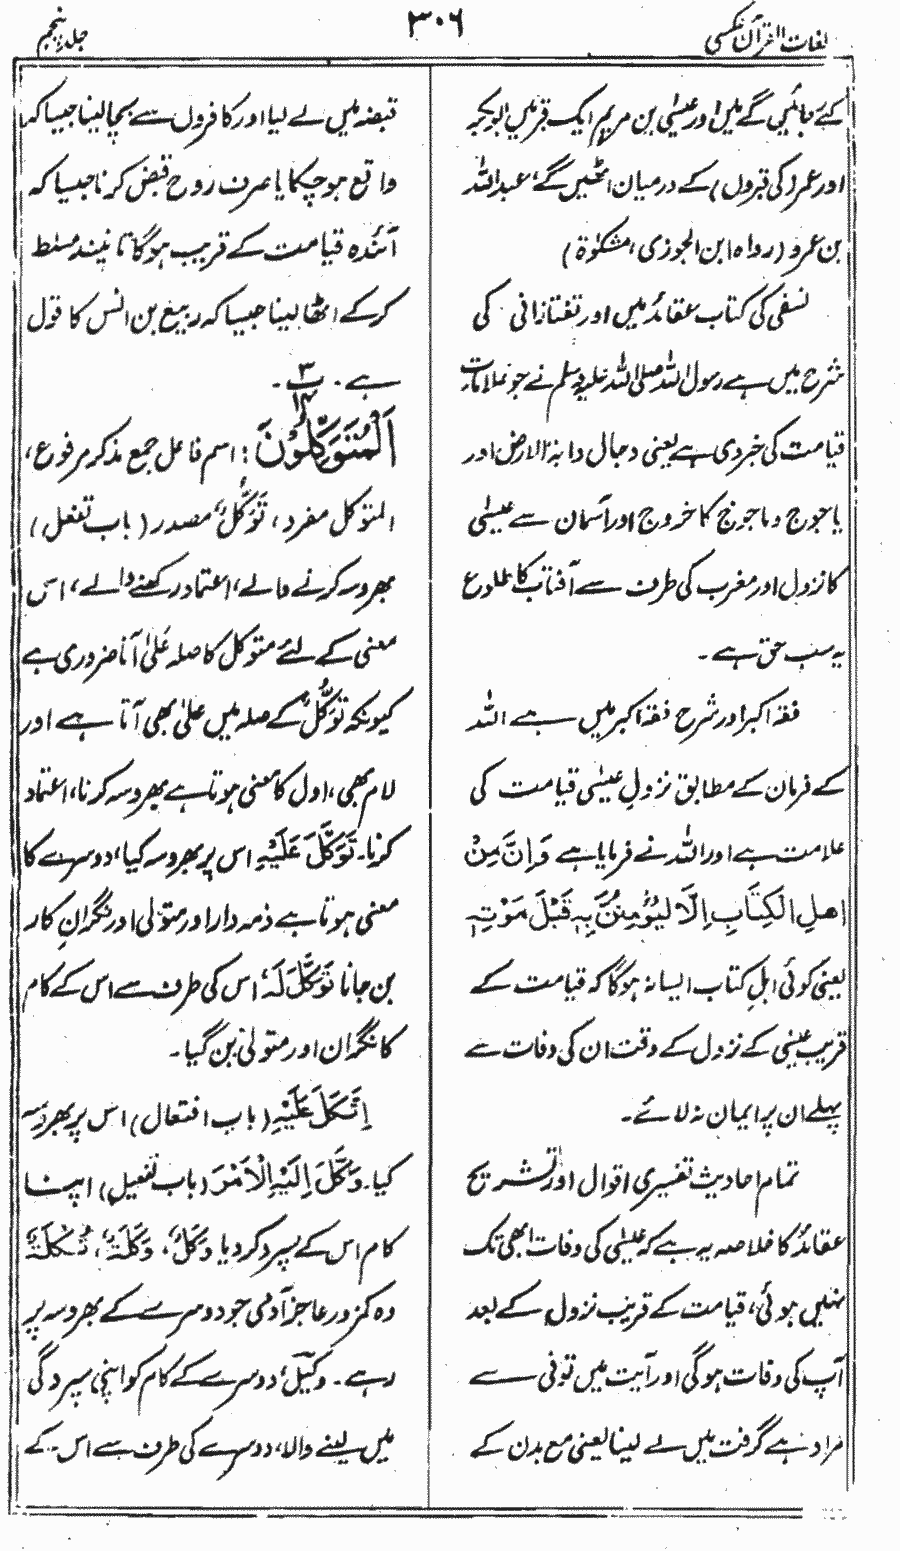 لغات القرآن عکسی
۳۰۶
جلد پنجم
کئے جائیں گے میں اور عیسیٰ بن مریم ایک قبر میں ابوبکر
اور عمر (کی قبروں) کے درمیان اٹھیں گے، عبداللہ
بن عمرو (رواہ ابن الجوزی، مشکوٰۃ)
نسفی کی کتاب عقائد میں اور تفتازانی کی
شرح میں ہے رسول اللہ صلی اللہ علیہ وسلم نے جو علامات
قیامت کی خبر دی ہے یعنی دجال دابۃ الارض اور
یاجوج وماجوج کا خروج اور آسمان سے عیسیٰ
کا نزول اور مغرب کی طرف سے آفتاب کا طلوع
یہ سب حق ہے۔
فقہ اکبر اور شرح فقہ اکبر میں ہے اللہ
کے فرمان کے مطابق نزولِ عیسیٰ قیامت کی
علامت ہے اور اللہ نے فرمایا ہے وَاِنَّ مِنْ
اھلِ الْکِتَابِ اِلَّا لَیُؤْمِنَنَّ بِہٖ قَبْلَ مَوْتِہٖ
یعنی کوئی اہلِ کتاب ایسا نہ ہوگا کہ قیامت کے
قریب عیسٰی کے نزول کے وقت ان کی وفات سے
پہلے ان پر ایمان نہ لائے۔
تمام احادیث تفسیری اقوال اور تشریح
عقائد کا خلاصہ یہ ہے کہ عیسیٰ کی وفات ابھی تک
نہیں ہوئی، قیامت کے قریب نزول کے بعد
آپ کی وفات ہوگی اور آیت میں توفی سے
مراد ہے گرفت میں لے لینا یعنی مع بدن کے
قبضہ میں لے لیا اور کافروں سے بچا لینا جیسا کہ
واقع ہو چکا یا صرف روح قبض کرنا جیسا کہ
آئندہ قیامت کے قریب ہوگا یا نیند مسلط
کرکے اٹھا لینا جیسا کہ ربیع بن انس کا قول
ہے۔ پ ۳ ۱۴
اَلْمُتَوَکِّلُوْنَ : اسم فاعل جمع مذکر مرفوع،
المتوکل مفرد، تَوَکُّلٌ مصدر (باب تفعل)
بھروسہ کرنے والے، اعتماد رکھنے والے، اس
معنی کے لئے متوکل کا صلہ عَلیٰ آنا ضروری ہے
کیونکہ تَوَکُّلٌ کے صلہ میں علیٰ بھی آتا ہے اور
لام بھی، اول کا معنی ہوتا ہے بھروسہ کرنا، اعتماد
کرنا۔ تَوَکَّلَ عَلَیْہِ اس پر بھروسہ کیا، دوسرے کا
معنی ہوتا ہے ذمہ دار اور متولی اور نگرانِ کار
بن جانا تَوَکَّلَ لَہٗ اس کی طرف سے اس کے کام
کا نگران اور متولی بن گیا۔
اِتَّکَلَ عَلَیْہِ (باب افتعال) اس پر بھروسہ
کیا۔ وَکَّلَ اِلَیْہِ الْاَمْرَ (باب تفعیل) اپنا
کام اس کے سپرد کردیا وَکَلٌ، وَکَلَۃٌ، تُکَلَۃٌ
وہ کمزور عاجز آدمی جو دوسرے کے بھروسہ پر
رہے۔ وکیلٌ، دوسرے کے کام کو اپنی سپردگی
میں لینے والا، دوسرے کی طرف سے اس کے